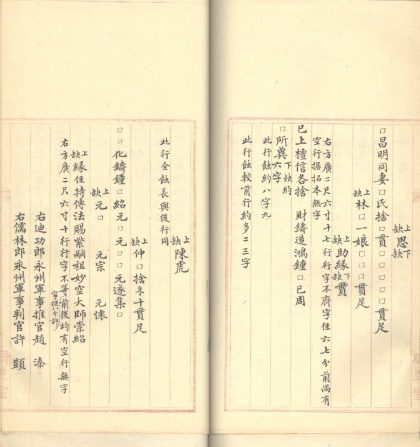 上缺恩下缺
□昌明同妻□氏捨□貫□□□□貫足
上缺林□一娘□□□□貫足
上缺助緣下缺貫
右方廣二尺六寸十七行行字不齊字徑六七分前尚有
空行據拓本無字
已上檀信各捨 財鑄造鴻鍾□已周
□所異下缺約六字
此行蝕約八字九
此行蝕較前行約多二三字
此行全蝕長與後行同
上缺陳虎
上缺仲□捨冬十貫足
□□化鑄鍾□紹元□元□□元逐集□
上缺元□ 元宗 元懷
上缺緣住持傳法賜紫嗣祖妙空大師崇紹
右方廣二尺六寸十行行字不等前後均有空行無字
字徑八分許
右迪功郎永州軍事推官趙 溱
右儒林郎永州軍事判官許 顗